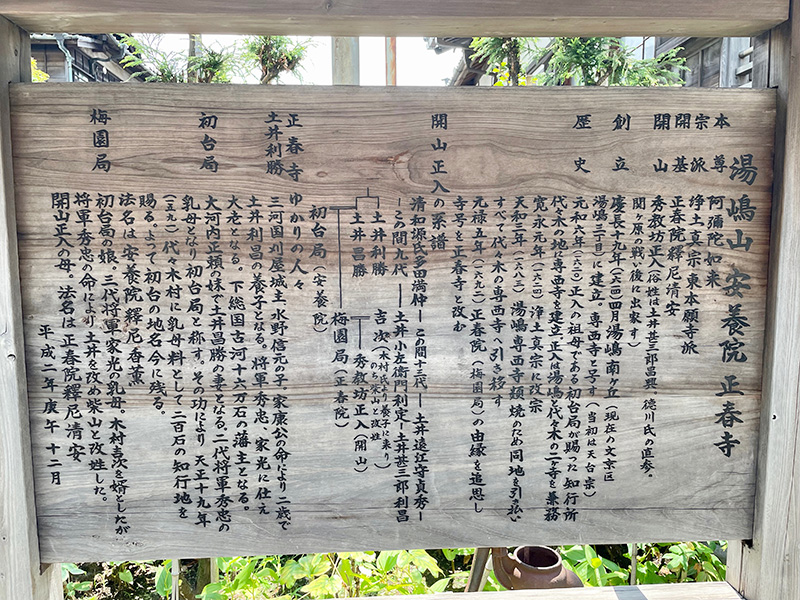 湯嶋山 安養院 正春寺
本尊 阿彌陀如来
宗派 浄土真宗東本願寺派
開基 正春院釋尼清安
開山 秀教坊正入(俗性は土井甚三郎昌興 徳川氏の直参。
関ヶ原の戦い後に出家す)
創立 慶長十九年(一六一四)四月湯嶋南ヶ丘(現在の文京区
湯嶋三丁目)に建立、専西寺と号す(当初は天台宗)
歴史 元和六年(一六二〇)正入の祖母である初台局が賜った知行所
代々木の地に専西寺を建立 正入は湯嶋と代々木の二ヶ寺を兼務
寛永元年(一六二四)浄土真宗に改宗
天和三年(一六八三)湯嶋専西寺類焼のため同地を引き払い
すべて代々木の専西寺へ引き移す
元禄五年(一六九二)正春院(梅園局)の由縁を追思し
寺号を正春寺と改む
開山正入の系譜
清和源氏多田満仲―この間十三代―土井遠江守貞秀―
―この間九代―土井小左衛門利定―土井甚三郎利昌
土井利勝
土井昌勝
初台局(安養院)
吉次(木村氏より養子に来り
のち柴山と改姓)
梅園局(正春院)
秀教坊正入(開山)
正春寺ゆかりの人々
土井利勝 三河国刈屋城主水野信元の子、家康公の命により二歳で
土井利昌の養子となる。将軍秀忠、家光に仕え
大老となる。下総国古河十六万石の藩主となる。
初台局 大河内正頼の妹で土井昌勝の妻となる。二代将軍秀忠の
乳母となり初台局と称す。その功により 天正十九年
(一五九一)代々木村に乳母料として二百石の知行地を
賜る。よって初台の地名今に残る。
法名は安養院釋尼香薫
梅園局 初台局の娘。三代将軍家光の乳母。木村吉次を婿としたが
将軍秀忠の命により土井を改め柴山と改姓した。
開山正入の母。法名は正春院釋尼清安
平成二年庚午 十二月